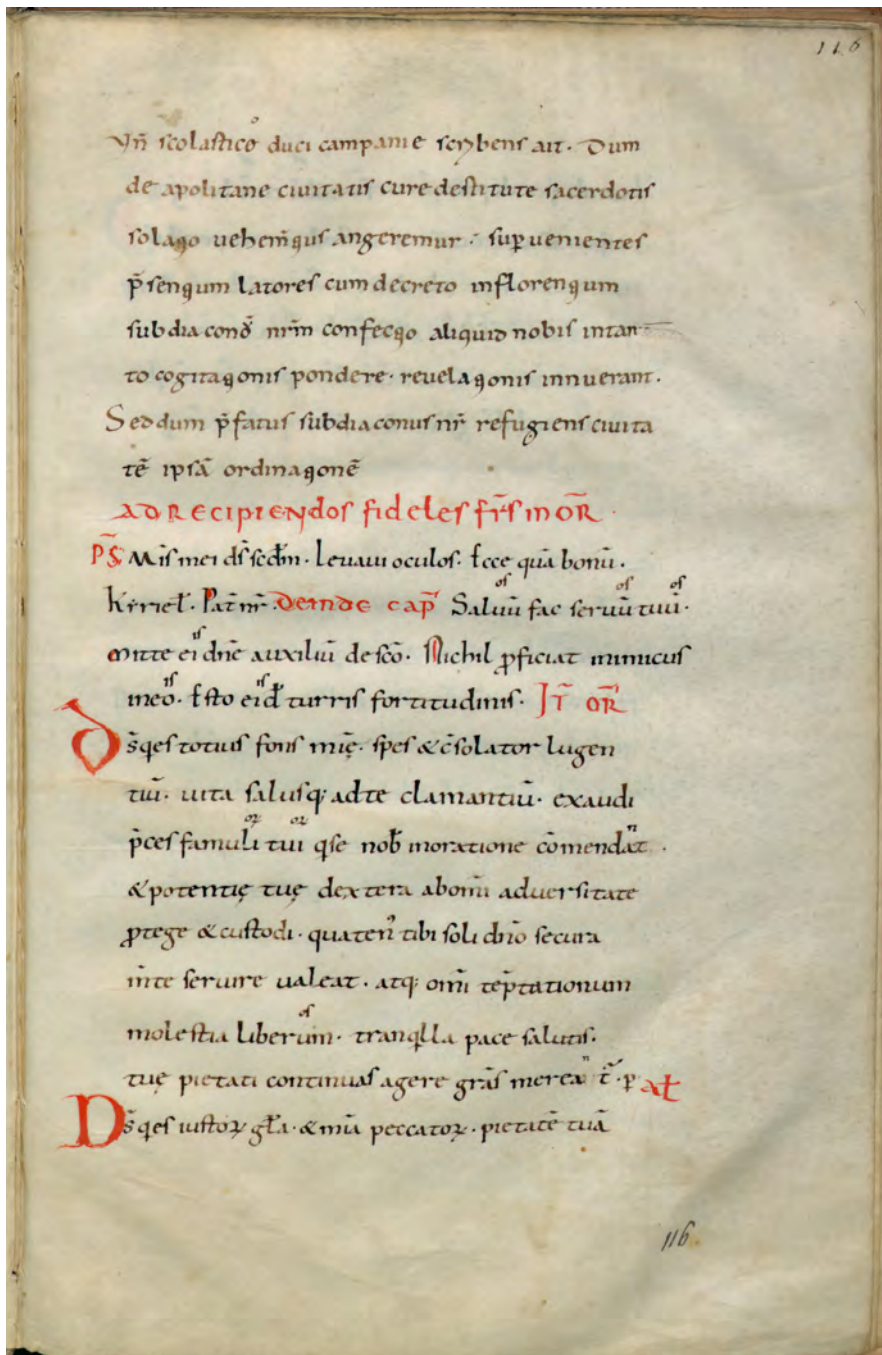 116
Vn̄ scolastico duci campanie scrybens ait· Dum
de apolitane ciuitatis cure destitute sacerdotis
solaqo uehem̄qus angeremur· sup̱uenientes
p̄senqum latores cum decreto inflorenqum
subdiacon̄ nr̄m confecqo aliquid nobis intan
to cogitaqonis pondere· reuelaqonis innuerant·
Sed dum p̄fatus subdiaconus nr̄ refugiens ciuita
tē ipsā ordinaqonē
AD RECIPIENdos fideles fr̄s in OR̄·
PS̄ Mis mei ds̄ scdm̄· Leuaui oculos· Ecce quā bonū·
Kyriel̄· Pat̄ nr̄· Deinde cap̄ Saluū fac seruū tuū·
os os os
mitte ei dn̄e auxiliū de sc̄o· Nichil ꝓficiat inimicus
is
in eo· Esto ei d̄ turris fortitudinis· IT̄ OR̄
is is
Ds̄ qes totius fons mi͞ę· spes & c̄solator lugen
tiū· uita salusq; ad te clamantiū· exaudi
p̄ces famuli tui qse nob̄ in oratione cōmendat̄·
oꝝ oꝝ n
& potentię tuę dextera ab om̄i aduersitate
ꝓtege & custodi· quaten̄ tibi soli dn̄o secura
m̄te seruire ualeat· atq; om̄i tēptationum
molestia liberum· tranqlla pace salutis·
os
tuę pietati continuas agere gr̄as merea t̄· p̱ aL̄
n
Ds̄ qes iustoꝝ gl̄a· & mi͞a peccatoꝝ· pietatē tuā
116